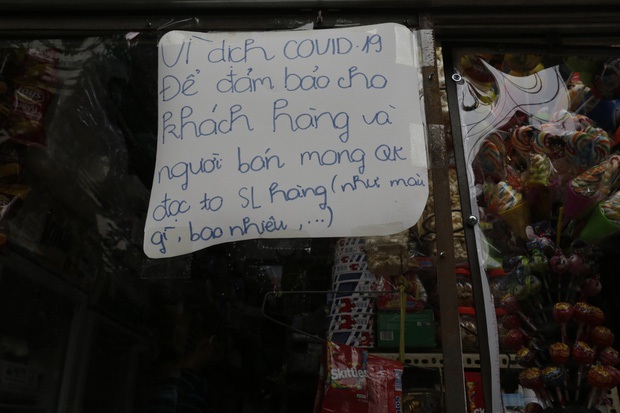 Vì dịch COVID.19
Để đảm bảo cho
khách hàng và
người bán mong QK
đọc to SL hàng (như màu
gì, bao nhiêu,...)
Skittles